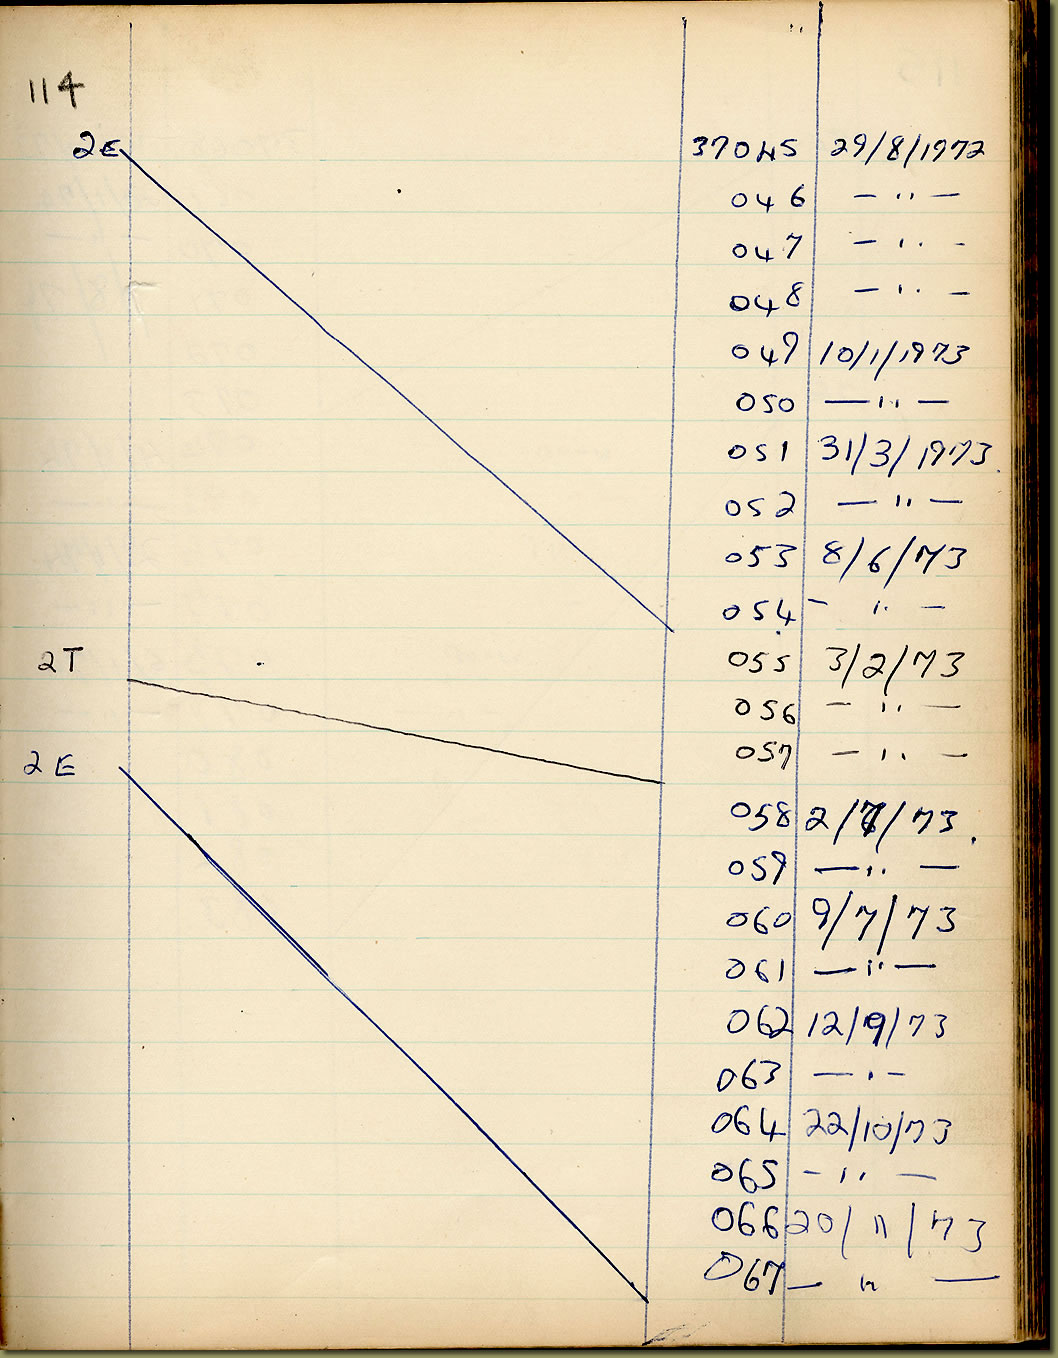 114
2E 37045 29/8/1972
046 — " —
047 — " -
048 — " —
049 10/1/1973
050 — " —
051 31/3/1973
052 — " —
053 8/6/73
054 - " —
2T 055 3/2/73
056 — " —
057 — " —
2E
058 2/7/73
059 — " —
060 9/7/73
061 — " —
062 12/9/73
063 — " —
064 22/10/73
065 - " —
066 20/11/73
067 — " —